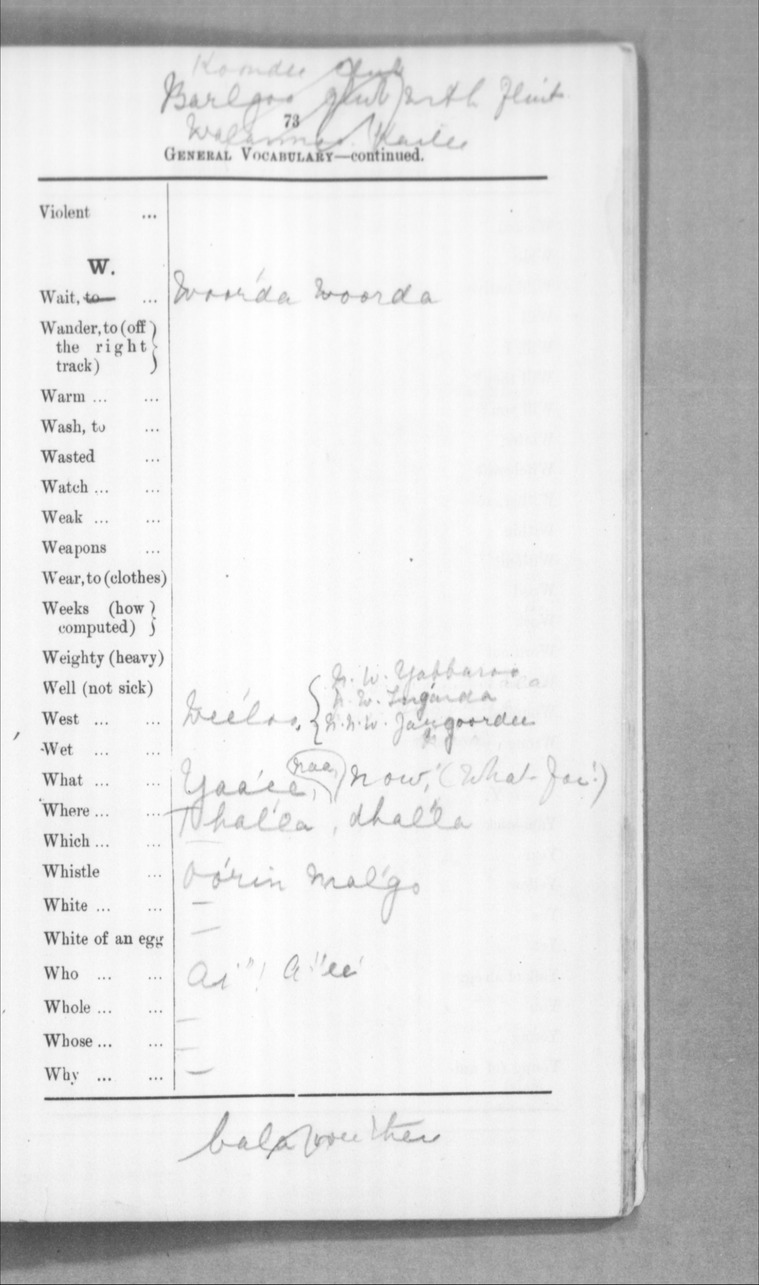 Koondee club
Barlgoo glut with flints
73
Walanmoo
GENERAL VOCABULARY—continued.
Violent ...
W.
Wait, to ... Woor'da woorda
Wander, to (off
the right
track)
Warm ... ...
Wash, to ...
Wasted ...
Watch ... ...
Weak ... ...
Weapons ...
Wear, to (clothes)
Weeks (how
computed)
Weighty (heavy)
N.W. Yabbaroo
Well (not sick)
N.W. Ingarda
West ... ... Weeloo, N.N.W. Jangoordee
Wet ... ...
What ... ... Yaa'ee, naa, now, (What for!)
Where ... ... Dhal'la, dhal'la
Which ... ... —
Whistle ... Oo'rin mal'go
White ... ... —
White of an egg —
Who ... ... Ai"! A"ee
Whole ... ... —
Whose ... ... —
Why ... ... —